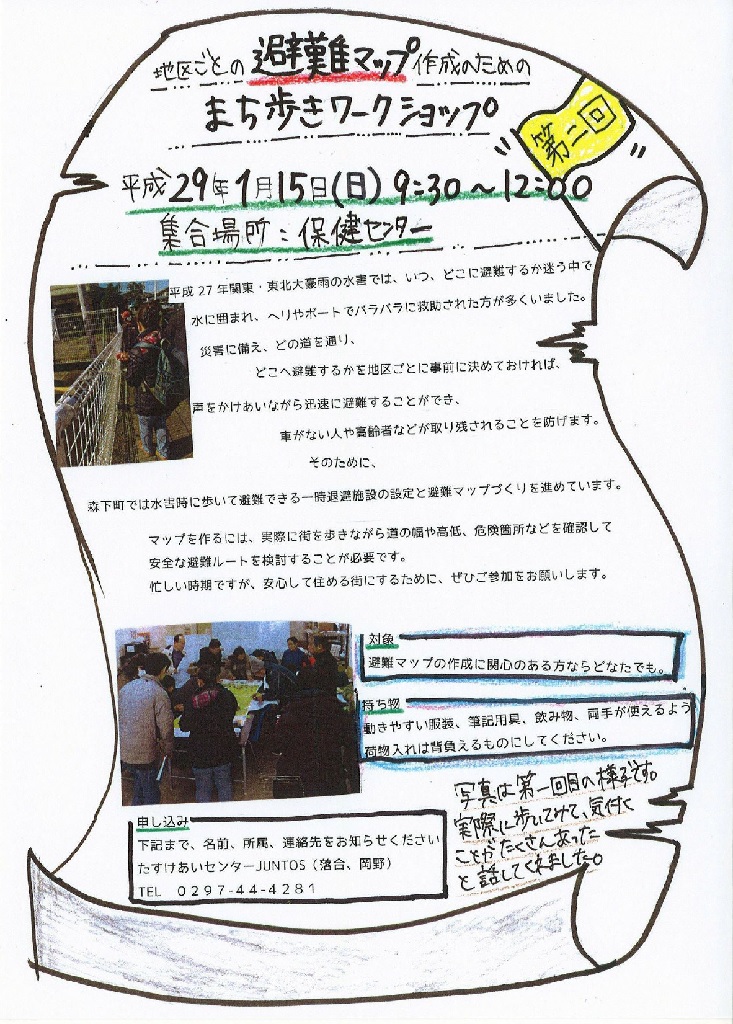 地区ごとの避難マップ作成のための
まち歩きワークショップ。
第二回
平成29年1月15日(日)9:30～12:00
集合場所:保健センター
平成27年関東・東北大豪雨の水害では、いつ、どこに避難するか迷う中で
水に囲まれ、ヘリやボートでバラバラに救助された方が多くいました。
災害に備え、どの道を通り、
どこへ避難するかを地区ごとに事前に決めておければ、
声をかけあいながら迅速に避難することができ、
車がない人や高齢者などが取り残されることを防げます。
そのために、
森下町では水害時に歩いて避難できる一時退避施設の設定と避難マップづくりを進めています。
マップを作るには、実際に街を歩きながら道の幅や高低、危険箇所などを確認して
安全な避難ルートを検討することが必要です。
忙しい時期ですが、安心して住める街にするために、ぜひご参加をお願いします。
対象
避難マップの作成に関心のある方ならどなたでも。
持ち物
動きやすい服装、筆記用具、飲み物、両手が使えるよう
荷物入れは背負えるものにしてください。
写真は第一回目の様子です。
実際に歩いてみて、気付く
ことがたくさんあった
と話してくれました。
申し込み
下記まで、名前、所属、連絡先をお知らせください
たすけあいセンターJUNTOS（落合、岡野）
TEL 0297-44-4281